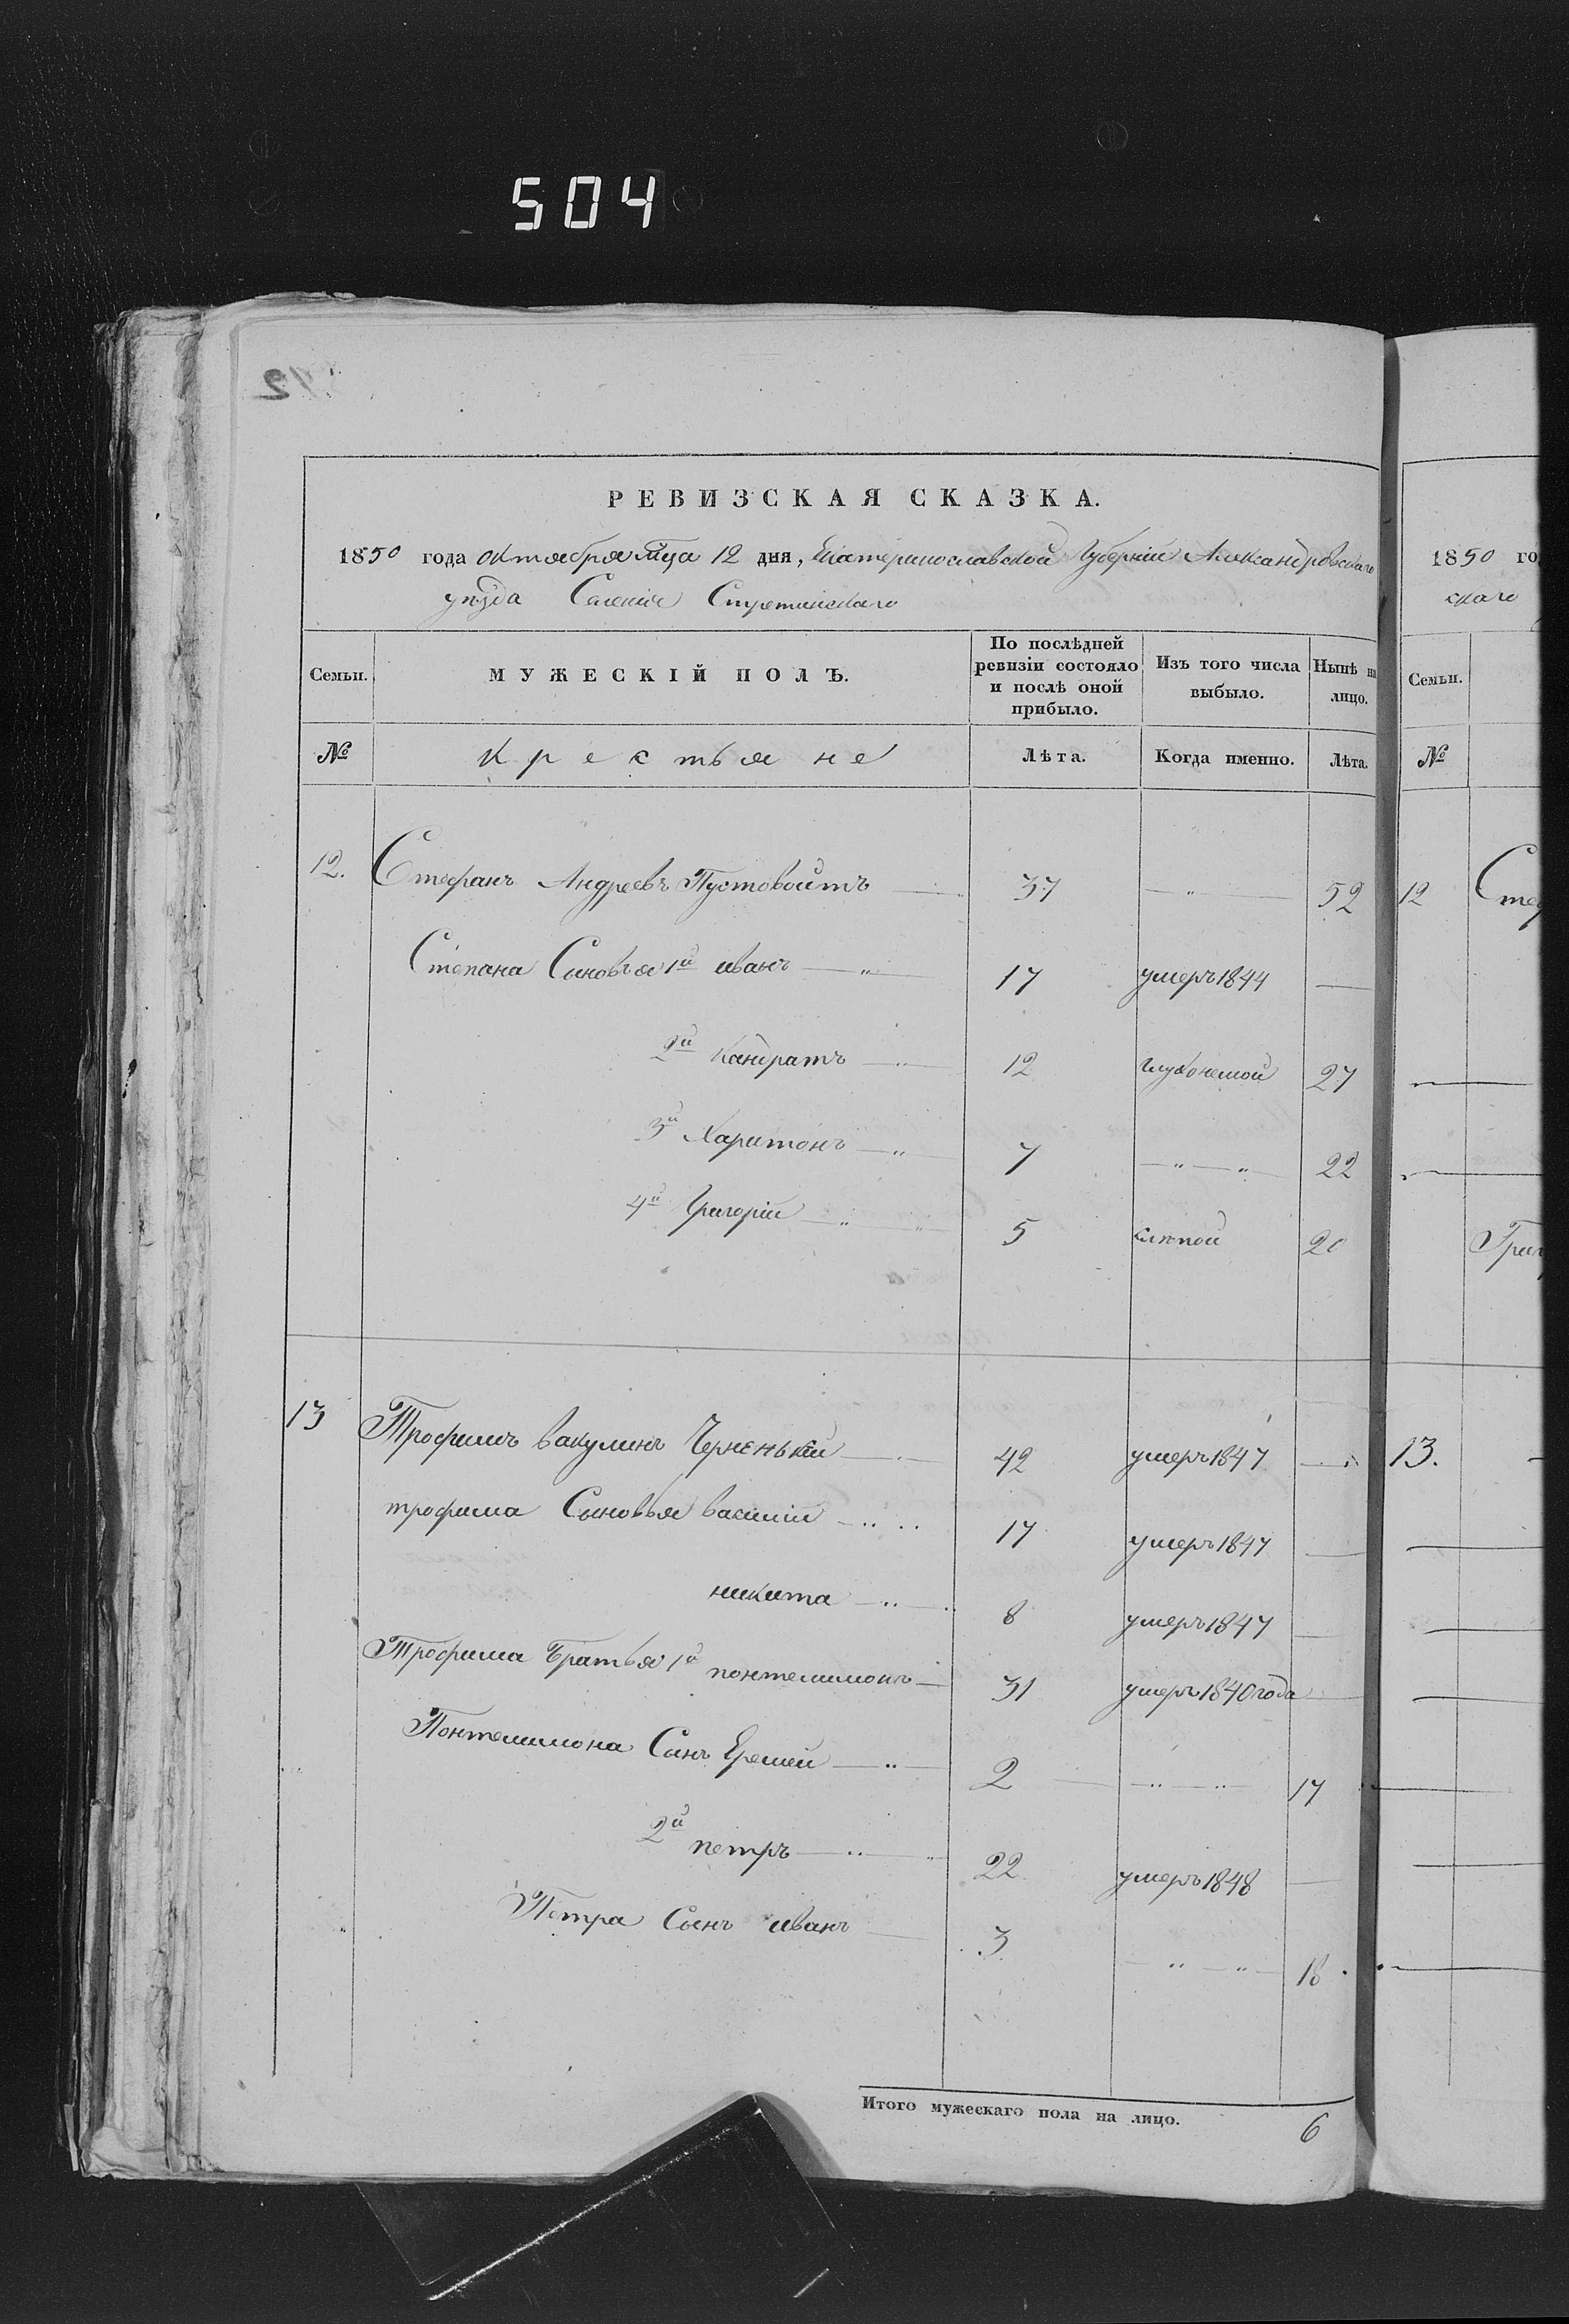 504
12
РЕВИЗСКАЯ СКАЗКА.
1850 года октября мца 12 дня, Екатеринославской Губерніи Александровскаго
уѣзда Селенія Стретинскаго
Семьи. МУЖЕСКІЙ ПОЛЪ. По послѣдней ревизіи состояло и послѣ оной прибыло. Изъ того числа выбыло. Нынѣ на лицо.
№ Крестьяне Лѣта. Когда именно. Лѣта.
12. Стефанъ Андреевъ Пустовойтъ 37 52
Степана Сыновья 1й иванъ 17 умеръ 1844
2й Кандратъ 12 глухонемой 27
3й Харитонъ 7 22
4й Григорій 5 слѣпой 20
13 Трофимъ вакулинъ Черненькій 42 умеръ 1847
трофима Сыновья василій 17 умеръ 1847
никита 8 умеръ 1847
Трофима Братья 1й понтелимонъ 31 умеръ 1840 года
Понтелимона Сынъ Еремей 2 17
2й петръ 22 умеръ 1848
Петра Сынъ иванъ 3 18
Итого мужескаго пола на лицо. 6
1850 го
скаго
Семьи.
№
12 Стеф
Григ
13.